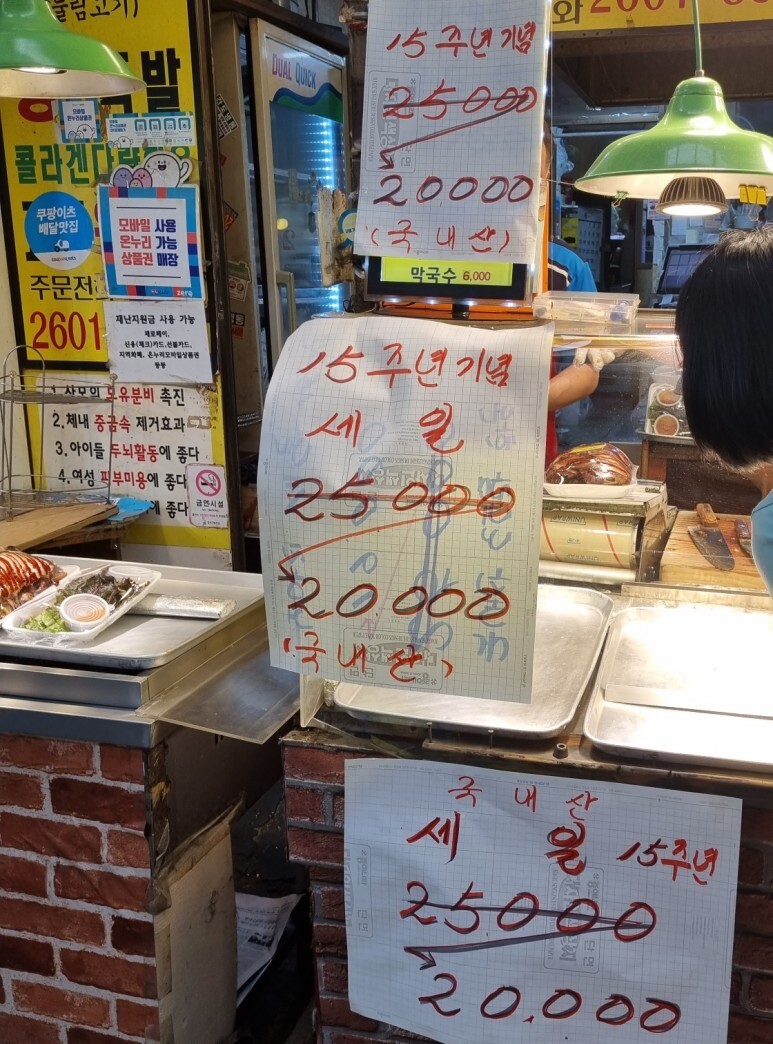 15주년기념
25000
20,000
(국내산)
막국수 6,000
15주년기념
세 일
25000
20,000
(국내산)
국내산
세 일 15주년
25000
20,000
DUAL QUICK
발
콜라겐다
모바일
온누리상품권
쿠팡이츠
배달맛집
모바일 사용
온누리 가능
상품권 매장
zero
주문전
2601
재난지원금 사용 가능
제로페이,
신용(체크)카드,선불카드,
지역화폐, 온누리모바일상품권
등등
1. 산모의 모유분비 촉진
2.체내 중금속 제거효과
3.아이들 두뇌활동에 좋다
4.여성 피부미용에 좋다
에 좋다
금연시설
와 2601